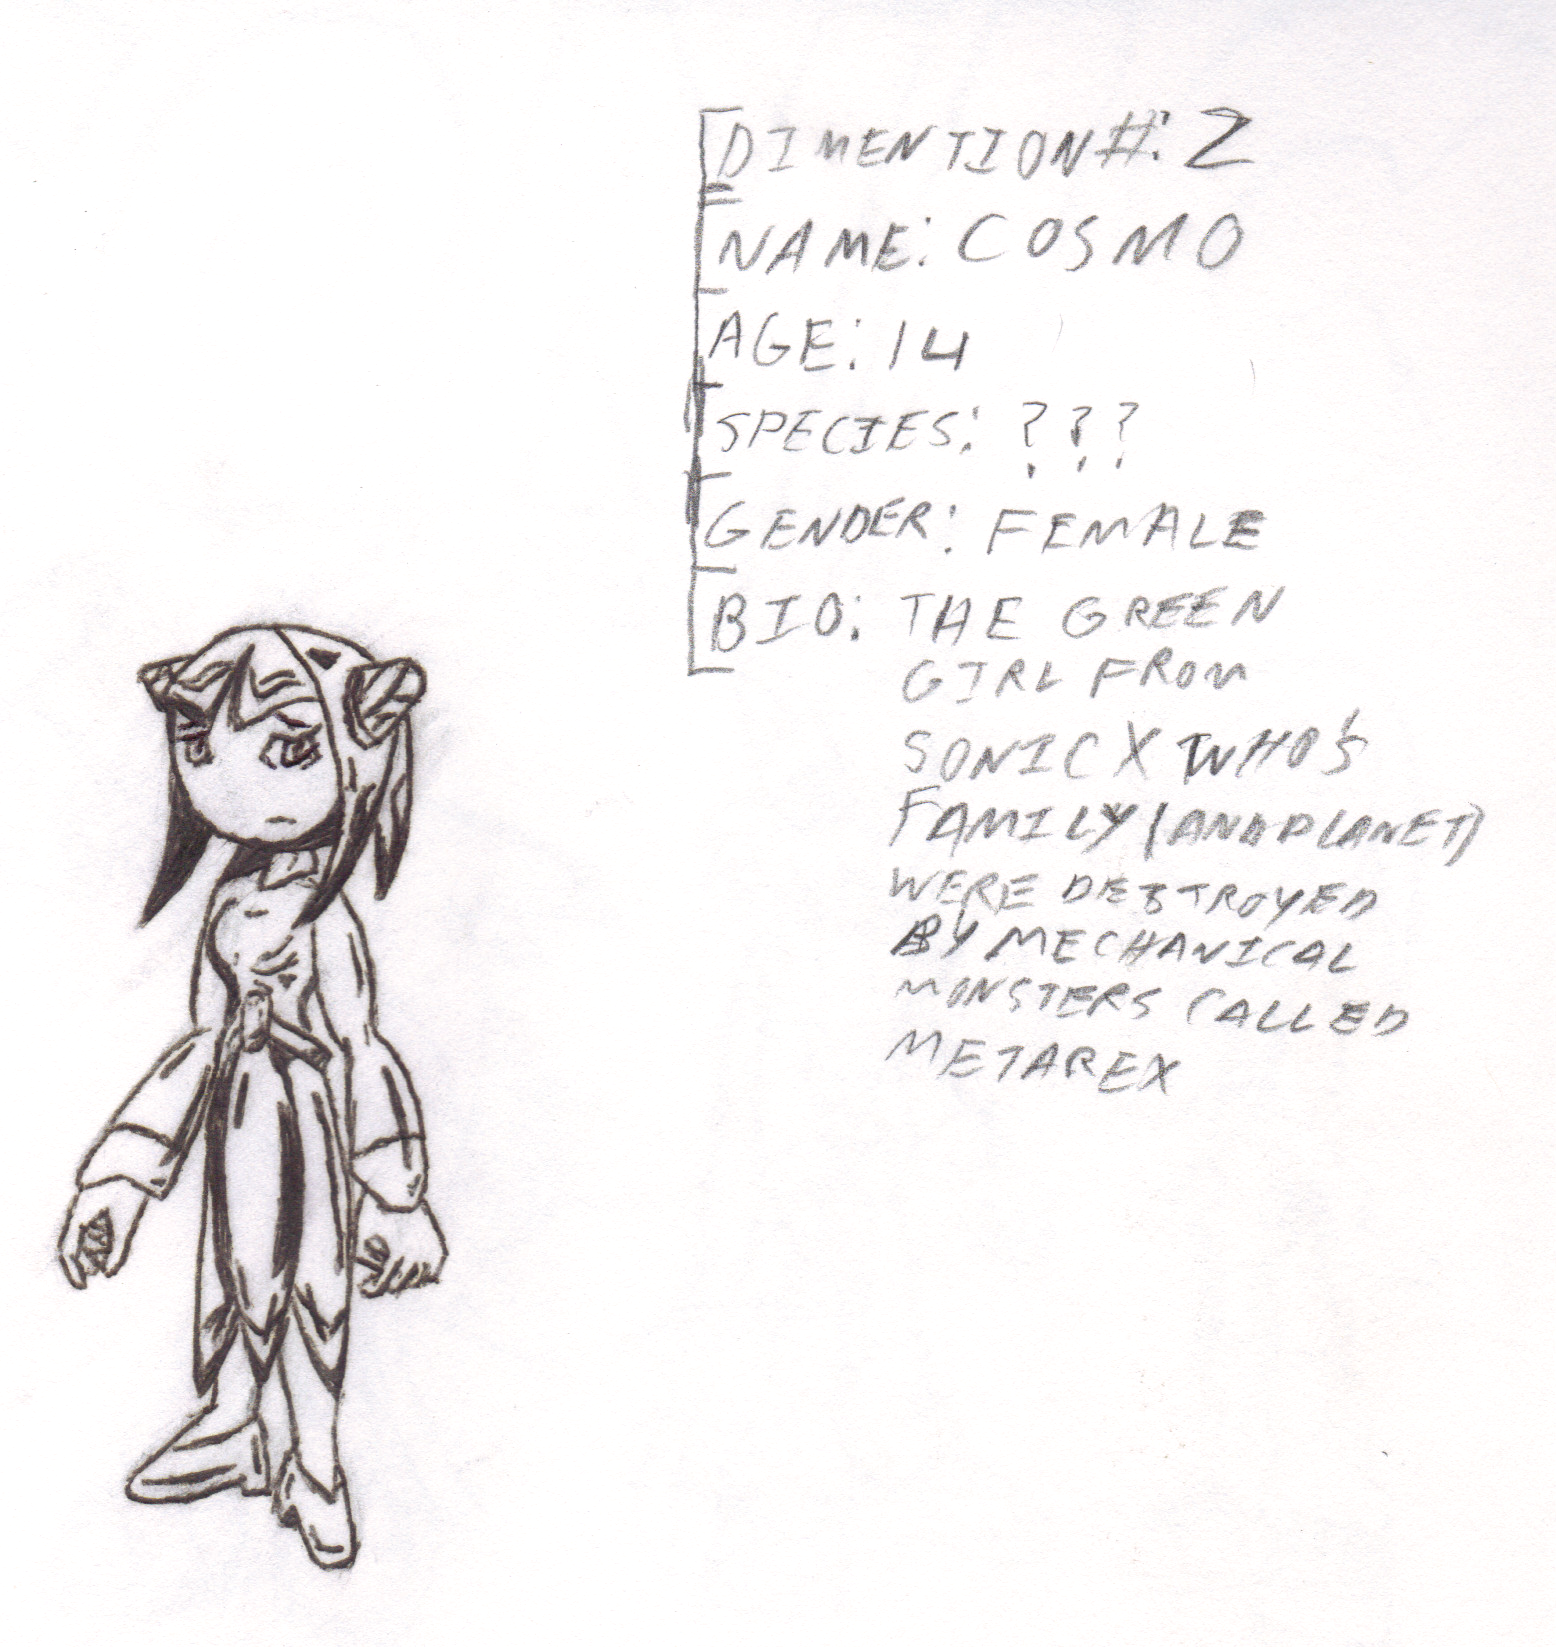 DIMENTION#: 2
NAME: COSMO
AGE: 14
SPECIES: ???
GENDER: FEMALE
BIO: THE GREEN
GIRL FROM
SONIC X WHO'S
FAMILY (AND PLANET)
WERE DESTROYED
BY MECHANICAL
MONSTERS CALLED
METAREX